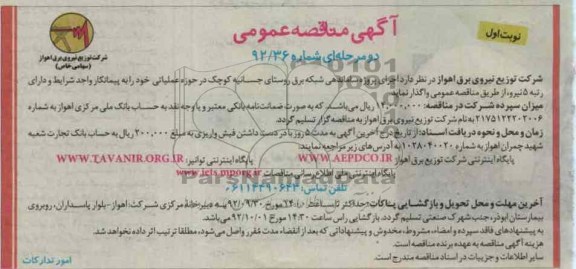 نوبت اول
آگهی مناقصه عمومی
دو مرحله‌ای شماره ۹۲/۳۶
شرکت توزیع نیروی برق اهواز
(سهامی خاص)
شرکت توزیع نیروی برق اهواز در نظر دارد اجرای پروژه ساماندهی شبکه برق روستای جسانیه کوچک در حوزه عملیاتی خود را به پیمانکار واجد شرایط و دارای
رتبه ۵ نیرو، از طریق مناقصه عمومی واگذار نماید.
میزان سپرده شرکت در مناقصه: ریال می‌باشد، که به صورت ضمانت‌نامه بانکی معتبر و یا وجه نقد به حساب بانک ملی مرکزی اهواز به شماره
۲۱۷۵۱۲۲۲۰۲۰۰۶ به نام شرکت توزیع نیروی برق اهواز به مناقصه گزار تسلیم گردد.
زمان و محل و نحوه دریافت اسناد: از تاریخ درج آخرین آگهی به مدت ۵ روز با در دست داشتن فیش واریزی به مبلغ ۲۰۰,۰۰۰ ریال به حساب بانک تجارت شعبه
شهید چمران اهواز به شماره ۱۰۲۸۰۴۰۰۲۰ به آدرس‌های زیر مراجعه نمایند:
پایگاه اینترنتی شرکت توزیع برق اهواز WWW.AEPDCO.IR پایگاه اینترنتی توانیر WWW.TAVANIR.ORG.IR
پایگاه اینترنتی ملی اطلاع رسانی مناقصات www.iets.mporg.ir
تلفن تماس: ۰۶۱۱۴۴۹۰۶۳۳
آخرین مهلت و محل تحویل و بازگشایی پاکات: حداکثر تا ساعت ۹۲/۰۹/۳۰ به دبیرخانه مرکزی شرکت: اهواز- بلوار پاسداران، روبروی
بیمارستان ابوذر، جنب شهرک صنعتی تسلیم گردد. بازگشایی راس ساعت ۱۴:۳۰ مورخ ۹۲/۱۰/۰۱ می‌باشد.
به پیشنهادهای فاقد سپرده و امضاء، مشروط، مخدوش و پیشنهاداتی که بعد از انقضاء مدت مقرر واصل می‌شود، مطلقا ترتیب اثر داده نخواهد شد.
هزینه آگهی مناقصه به عهده برنده مناقصه است.
سایر اطلاعات و جزییات در اسناد مناقصه مندرج است.
امور تدارکات